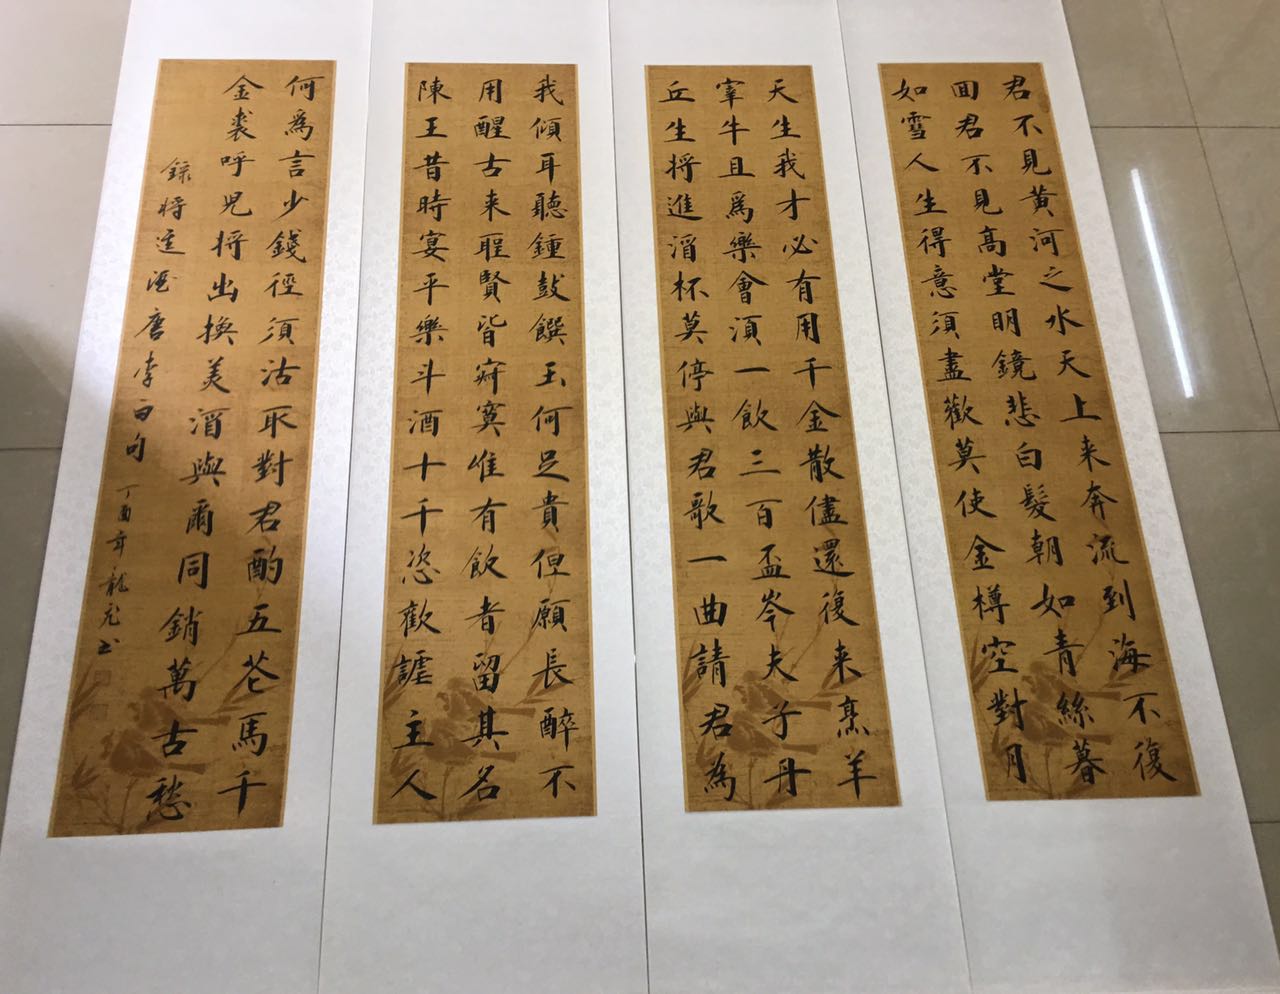 君不見黃河之水天上来奔流到海不復
回君不見髙堂明鏡悲白髮朝如青絲暮
如雪人生得意須盡歡莫使金樽空對月
天生我才必有用千金散儘還復来烹羊
宰牛且為樂會湏一飲三百盃岑夫子丹
丘生将進酒杯莫停與君歌一曲請君為
我傾耳聽鍾鼓饌玉何足貴但願長醉不
用醒古来聖賢皆寂寞惟有飲者留其名
陳王昔時宴平樂斗酒十千恣歡謔主人
何為言少錢徑須沽取對君酌五花馬千
金裘呼児将出換美酒與爾同銷萬古愁
錄将進酒唐李白句
丁酉年龍光书